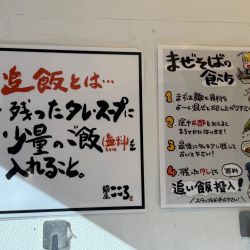 追飯とは…
残ったタレ・スープに
少量のご飯(無料)を
入れること。
麺屋こころ
まぜそばの
食べ方
1 まずは麺と具材を
よーく混ぜてお召し上がり下さい
2 途中お酢を加えると
まろやかになります!
3 最後に少しタレを残して
おいて下さい!
4 残ったタレに 無料
追い飯投入!
スタッフにお声がけ下さい